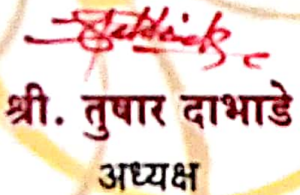 श्री. तुषार दाभाडे
अध्यक्ष